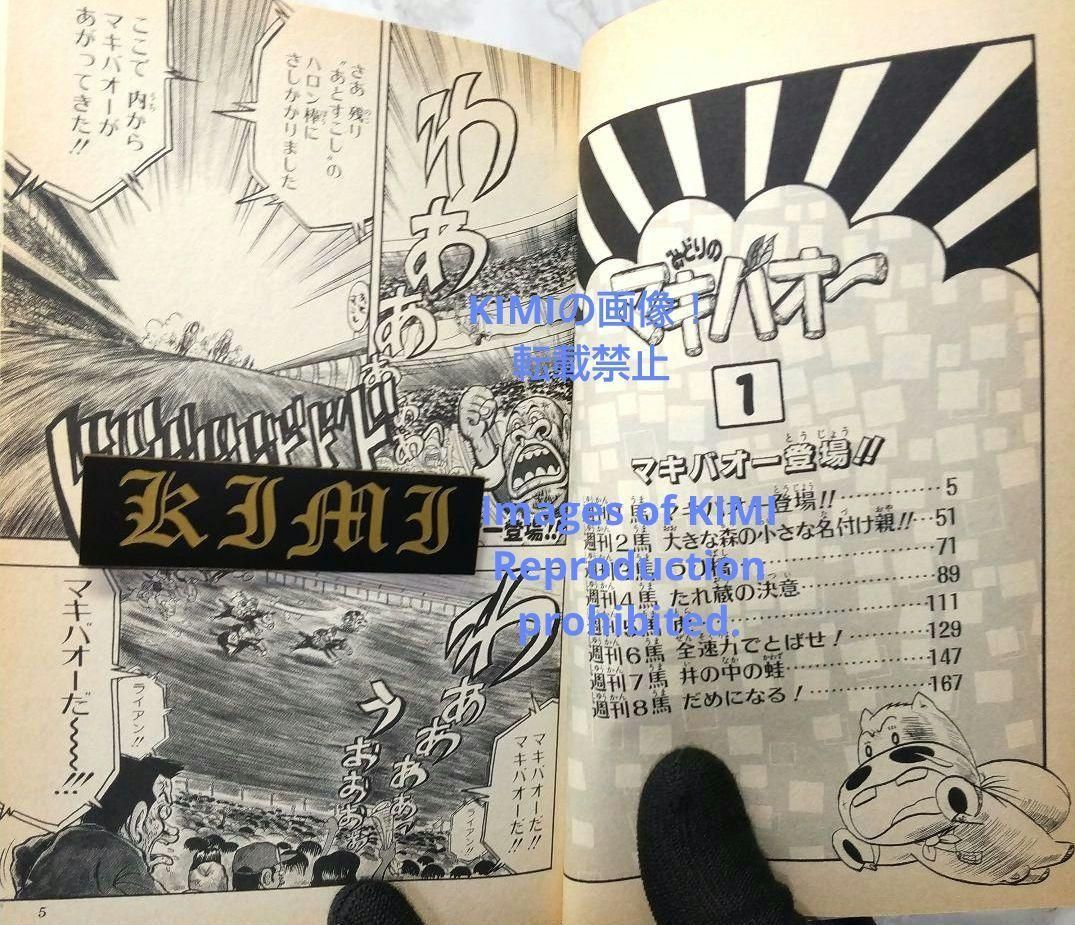 みどりの
マキバオー
1
マキバオー登場!!
とうじょう
登場!!‥‥‥‥5
週刊2馬 大きな森の小さな名付け親!!‥‥51
‥‥71
週刊4馬 たれ蔵の決意‥‥‥‥89
‥‥‥‥111
週刊6馬 全速力でとばせ!‥‥‥‥129
週刊7馬 井の中の蛙‥‥‥‥147
週刊8馬 だめになる!‥‥‥‥167
さあ 残り
“あとすこし”の
ハロン棒に
さしかかりました
ここで 内から
マキバオーが
あがってきた!!
わぁぁぁぁ
ー登場!!
わぁぁぁぁ
うおおおお
マキバオーだ!!
マキバオーだ!!
ライアン!!
ライアン!!
マキバオーだ〜〜〜!!!
5
KIMI
KIMIの画像!
転載禁止
Images of KIMI
Reproduction
prohibited.